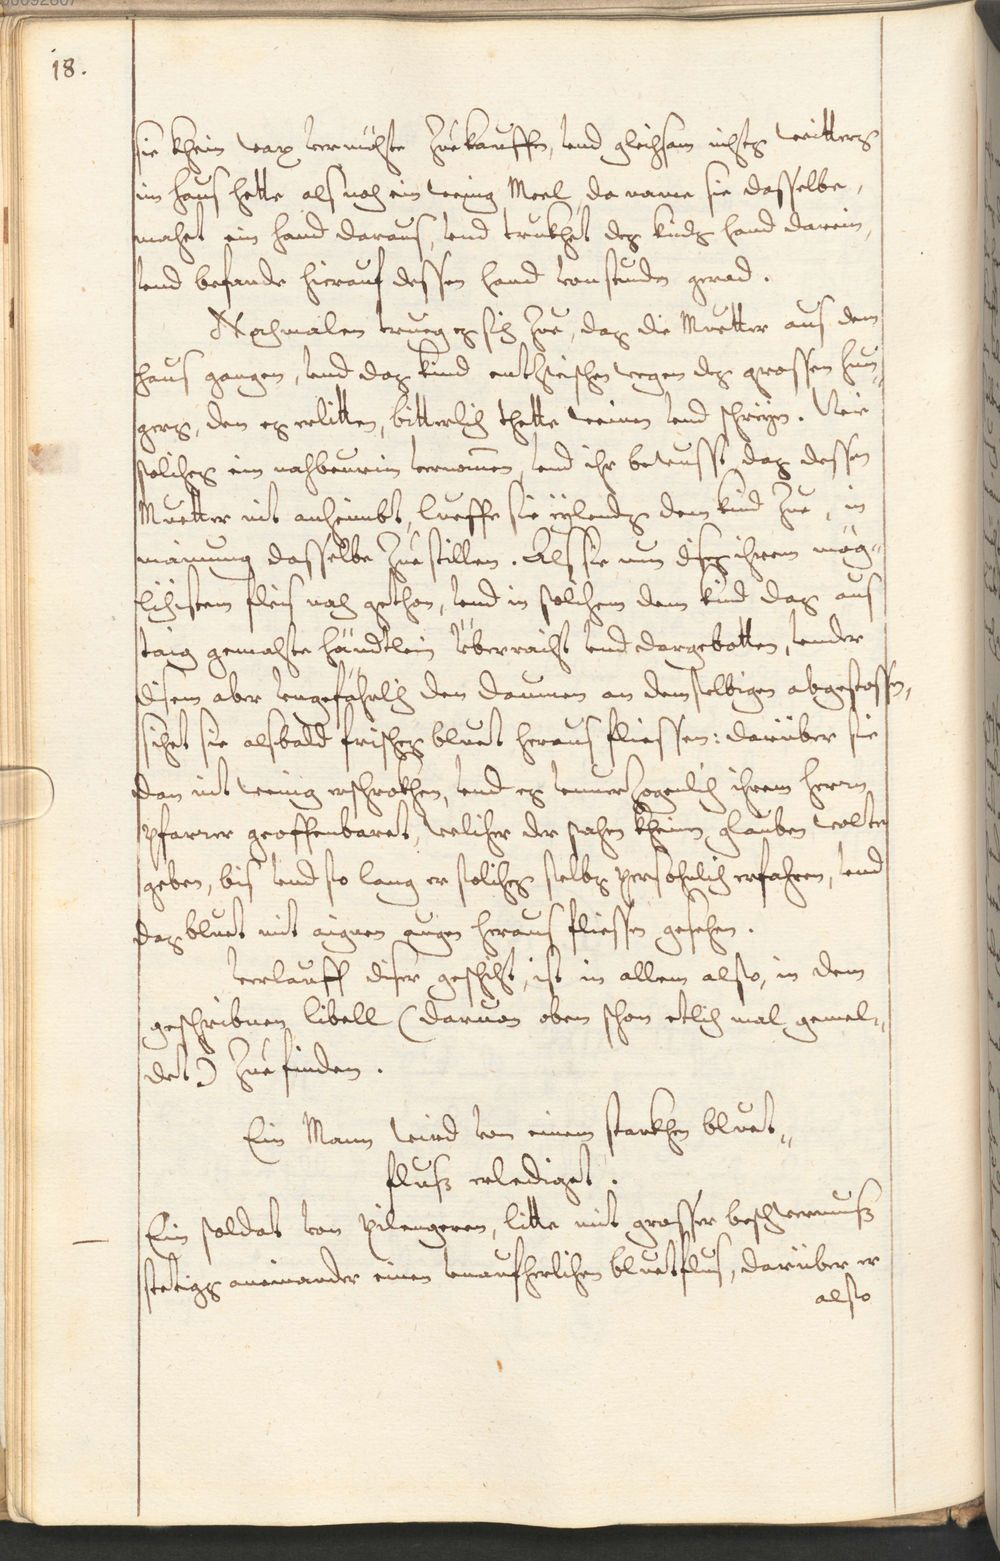 18.
sie khein wax vermöchte zuekauffen, vnd gleichsam nichts weitters
im haus hette als noch ein wenig Meel, da name sie dasselbe,
machet ein hand daraus, vnd trukhet des kinds hand darein,
vnd befande hierauf dessen hand von stundn gerad.
Nochmalen trueg es sich zue, das die Muetter aus dem
haus gangen, vnd das kind entzwischen wegen des grossen hun„
gers, den es erlitten, bitterlich thette weinen vnd schreÿen. Wie
solches ein nachbeurin vernomen, vnd ihr bewusst das dessen
Muetter nit anheimbs, lueffe sie eÿlends dem kind zue, in
mainung dasselbe zue stillen. Als sie nun dises ihrem mög„
lichistem fleis nach gethon, vnd in solchem dem kind das aus
taig gemachte händtlein überraicht vnd dargebotten, vnder
disem aber vngefährlich den daumen an demselbigen abgestossen,
sihet sie alsbald frisches bluet heraus fliessen: darüber sie
dan nit wenig erschrokhen, vnd es vnuerzogenlich ihrem herrn
pfarrer geoffenbaret, welicher der sachen kheinen glauben wolte
geben, bis vnd so lang er soliches selbs persöhnlich erfahren, vnd
das bluet mit aignen augen heraus fliessen gesehen.
Verlauff diser geschicht, ist in allem also, in dem
geschribnen libell (daruon oben schon etlich mal gemel„
det) zue finden.
Ein Mann wird von einem starkhen bluet„
fluß erlediget.
Ein soldat von Pilengeren, litte mit grosser beschwernuß
stetigs aneinander einen vnaufherlichen bluetflus, darüber er
also